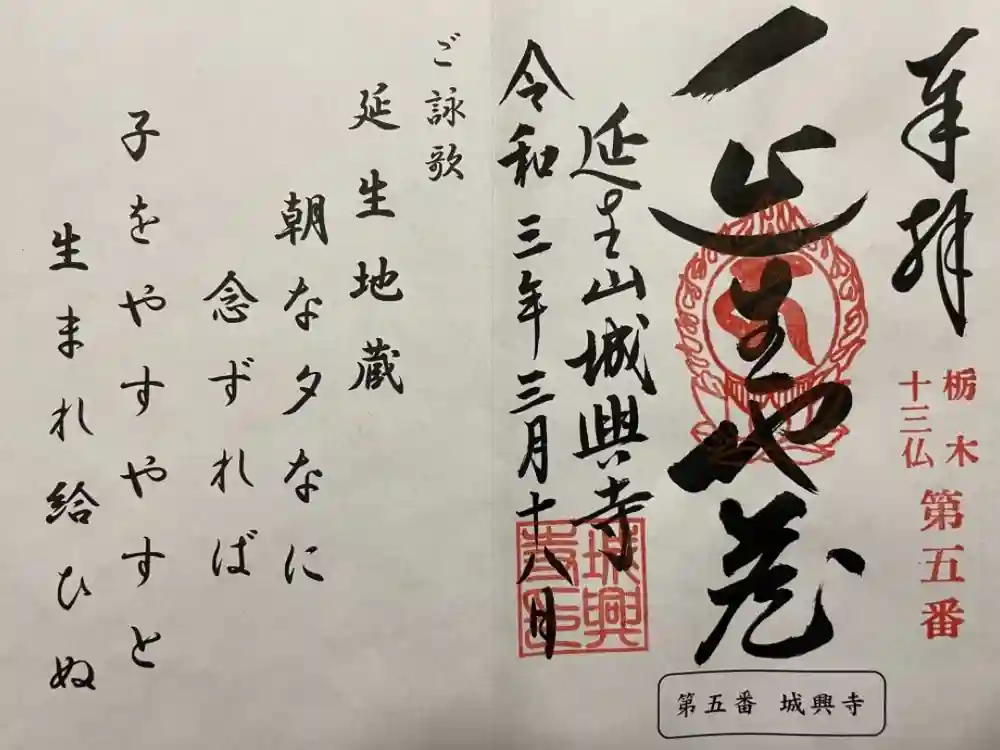 奉拝
栃木
十三仏
第五番
延生地蔵
延生山城興寺
令和三年三月十八日
城興
寺印
第五番 城興寺
ご詠歌
延生地蔵
朝な夕なに
念ずれば
子をやすやすと
生まれ給ひぬ